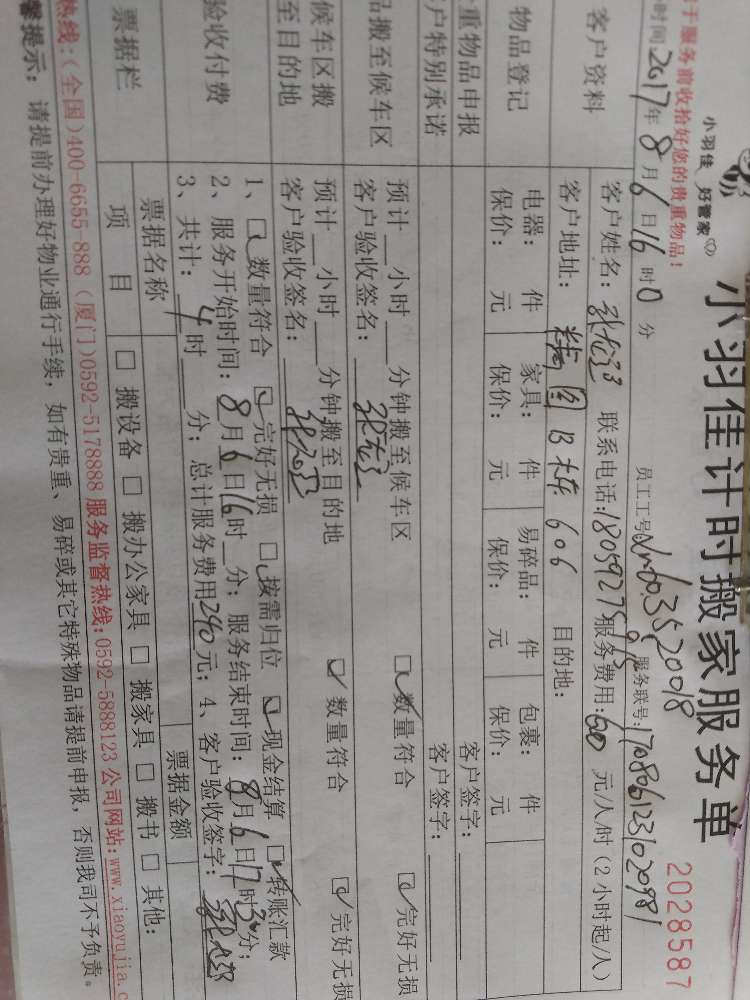 小羽佳 好管家
小羽佳计时搬家服务单
2028587
于服务前收拾好您的贵重物品！
员工工号 服务联号:
时间:2017年8月6日16时0分
客户资料
客户姓名: 联系电话: 服务费用:60元/人/时(2小时起/人)
客户地址: B栋606 目的地:
物品登记
电器: 件 家具: 件 易碎品: 件 包裹: 件
保价: 元 保价: 元 保价: 元 保价: 元
重物品申报 客户签字:
户特别承诺 客户签字:
品搬至候车区
预计 小时 分钟搬至候车区 数量符合 完好无损
客户验收签名:
候车区搬至目的地
预计 小时 分钟搬至目的地 数量符合 完好无损
客户验收签名:
验收付费
1、数量符合 完好无损 按需归位 现金结算 转账汇款
2、服务开始时间:8月6日16时 分；服务结束时间:8月6日17时30分；
3、共计:4时 分；总计服务费用240元；4、客户验收签字:
票据栏
票据名称 票据金额
项目 搬设备 搬办公家具 搬家具 搬书 其他:
热线:(全国)400-6655-888 (厦门)0592-5178888 服务监督热线:0592-5888123 公司网站:www.xiaoyujia.c
馨提示: 请提前办理好物业通行手续，如有贵重、易碎或其它特殊物品请提前申报，否则我司不予负责。